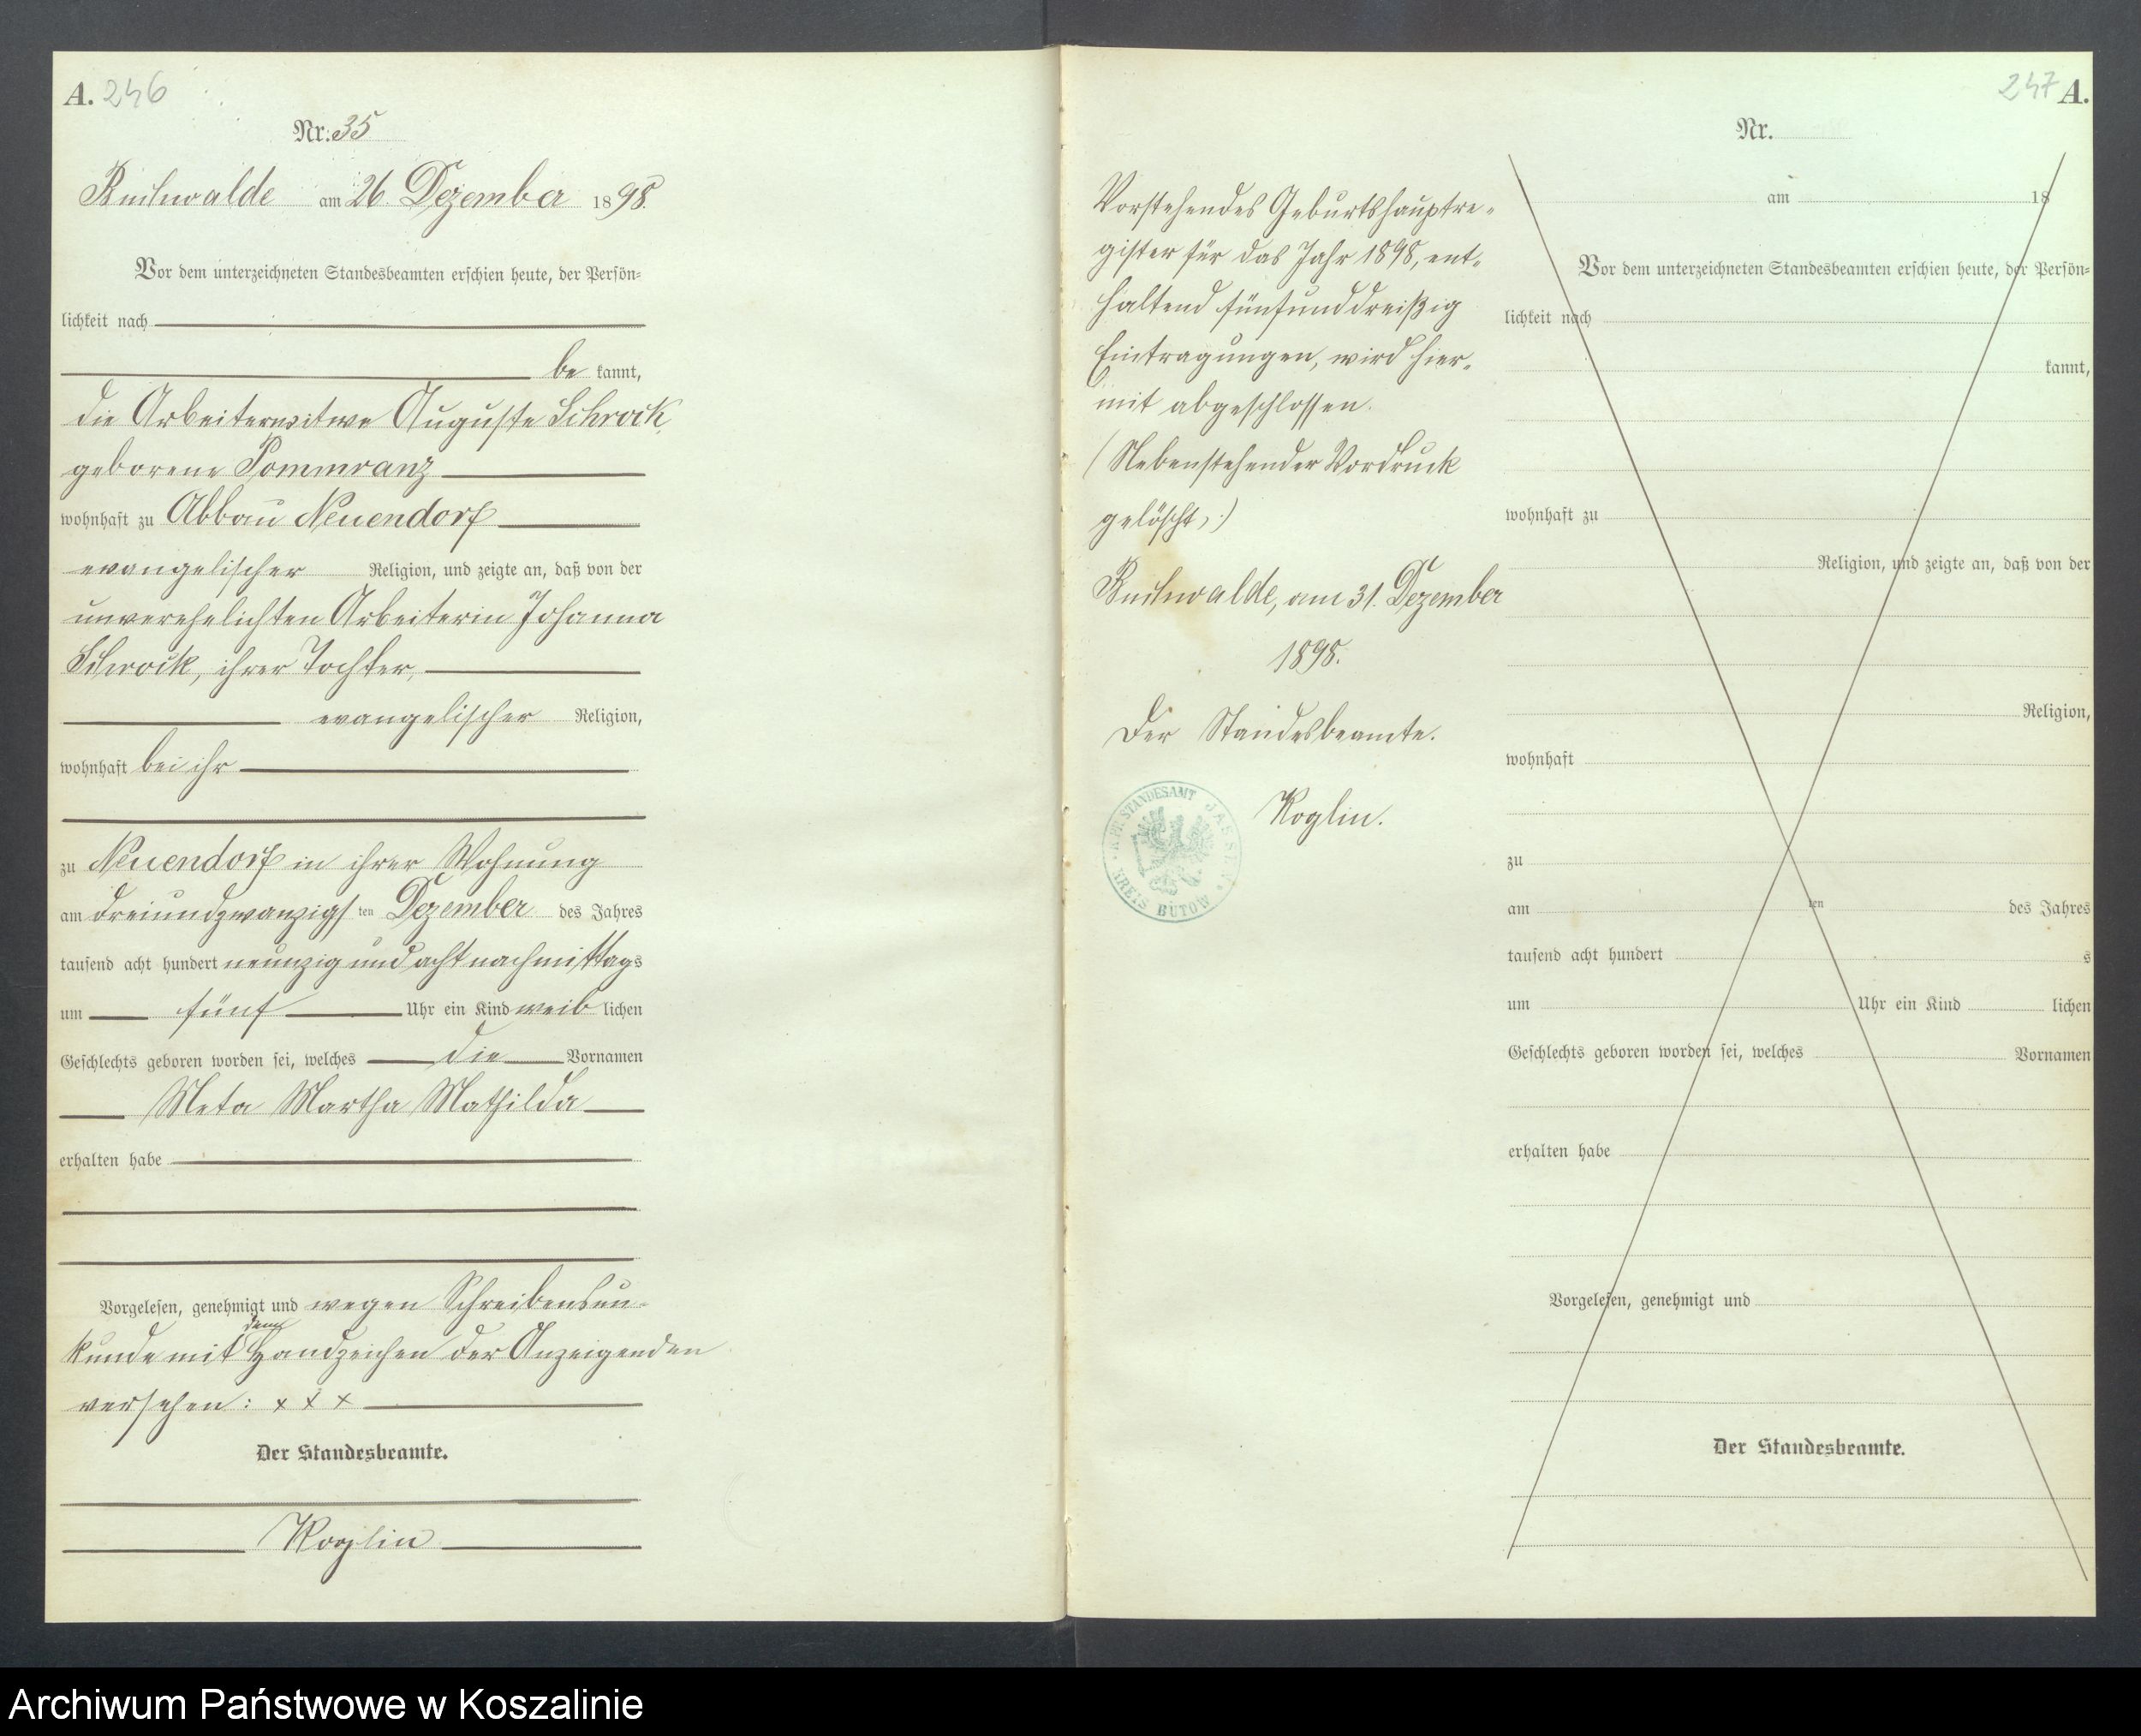 A. 246
Nr. 35
Buchwalde am 26. Dezember 1898.
Vor dem unterzeichneten Standesbeamten erschien heute, der Persön=
lichkeit nach
be kannt,
die Arbeiterwitwe Auguste Schrock,
geborene Pommranz
wohnhaft zu Abbau Neuendorf
evangelischer Religion, und zeigte an, daß von der
unverehelichten Arbeiterin Johanna
Schrock, ihrer Tochter,
evangelischer Religion,
wohnhaft bei ihr
zu Neuendorf in ihrer Wohnung
am dreiundzwanzigsten Dezember des Jahres
tausend acht hundert neunzig und acht nachmittags
um fünf Uhr ein Kind weiblichen
Geschlechts geboren worden sei, welches die Vornamen
Meta Martha Mathilda
erhalten habe
Vorgelesen, genehmigt und wegen Schreibensun=
kunde mit dem Handzeichen der Anzeigenden
versehen: x x x
Der Standesbeamte.
Koglin
247 A.
Vorstehendes Geburtshauptre=
gister für das Jahr 1898, ent=
haltend fünfunddreißig
Eintragungen, wird hier=
mit abgeschlossen.
(Nebenstehender Vordruck
gelöscht.)
Buchwalde, am 31. Dezember
1898.
Der Standesbeamte.
Koglin.
KPR. STANDESAMT JASSEN
KREIS BÜTOW
Nr.
am 18
Vor dem unterzeichneten Standesbeamten erschien heute, der Persön=
lichkeit nach
kannt,
wohnhaft zu
Religion, und zeigte an, daß von der
Religion,
wohnhaft
zu
am ten des Jahres
tausend acht hundert s
um Uhr ein Kind lichen
Geschlechts geboren worden sei, welches Vornamen
erhalten habe
Vorgelesen, genehmigt und
Der Standesbeamte.
Archiwum Państwowe w Koszalinie